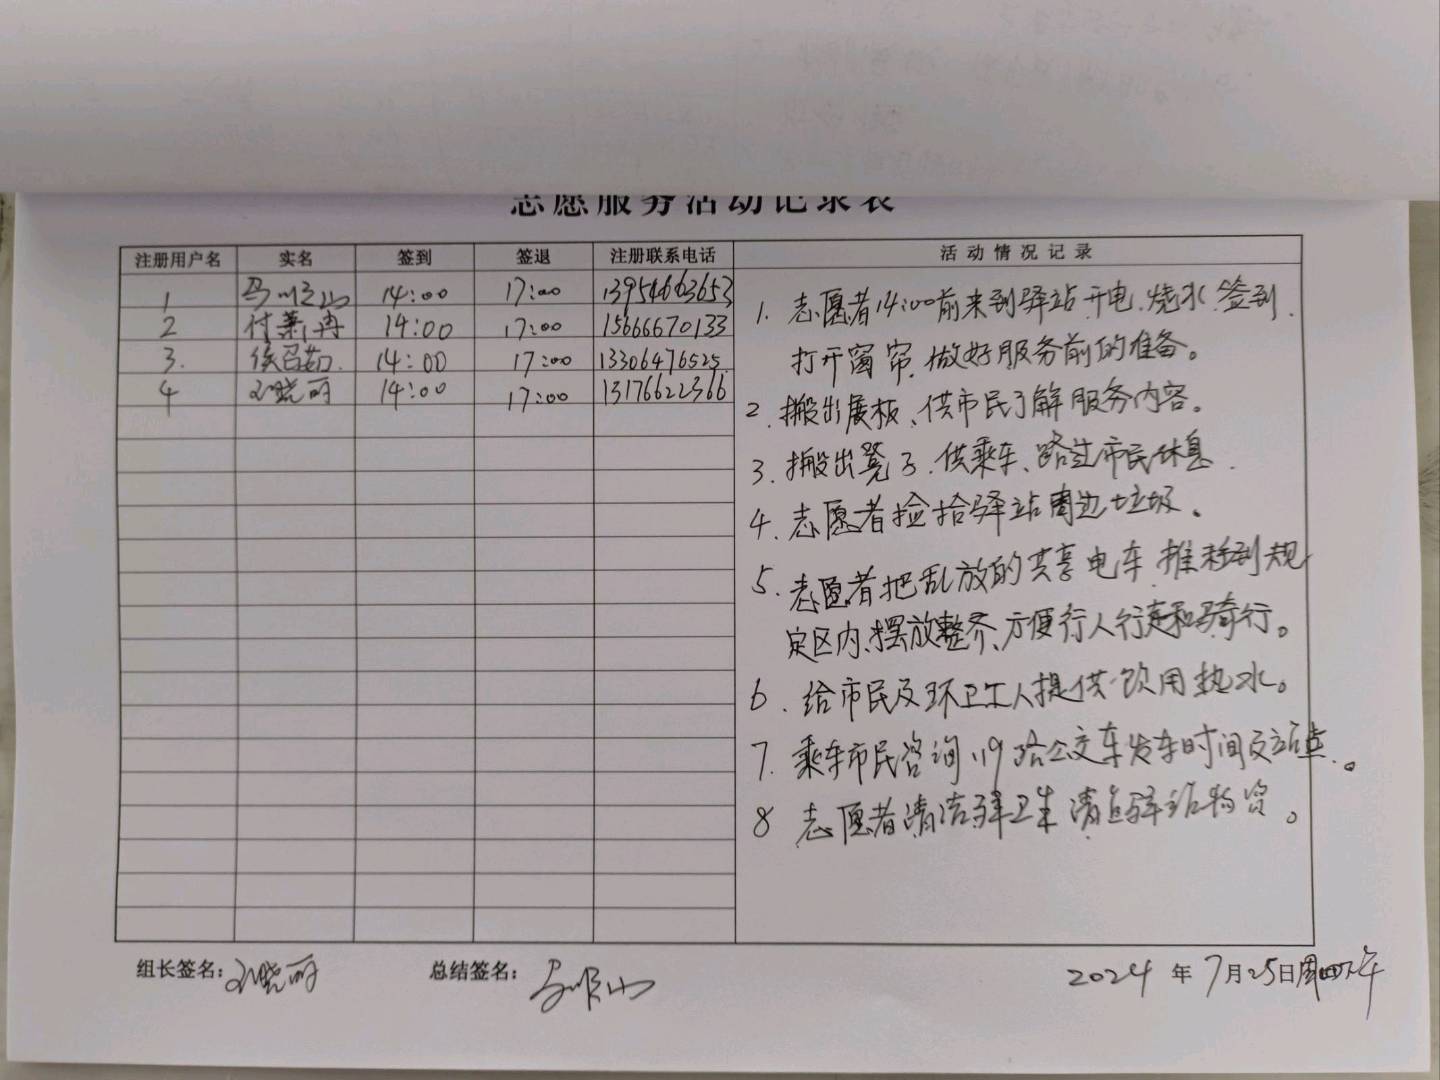 志愿服务活动记录表
注册用户名 实名 签到 签退 注册联系电话 活动情况记录
1 马顺山 14:00 17:00 13954663653
2 付萧冉 14:00 17:00 15666670133
3. 14:00 17:00 13306476525
4 刘晓丽 14:00 17:00 13176622366
1. 志愿者14:00前来到驿站、开电、烧水、签到、
打开窗帘、做好服务前的准备。
2. 搬出展板、供市民了解服务内容。
3. 搬出凳子、供乘车、路过市民休息.
4. 志愿者捡拾驿站周边垃圾。
5. 志愿者把乱放的共享电车、推移到规
定区内、摆放整齐、方便行人行走和骑行。
6. 给市民及环卫工人提供饮用热水。
7. 乘车市民咨询119路公交车发车时间及站点。
8 志愿者清洁驿卫生 清点驿站物资。
组长签名：刘晓丽 总结签名：马顺山 2024年7月25日周四下午